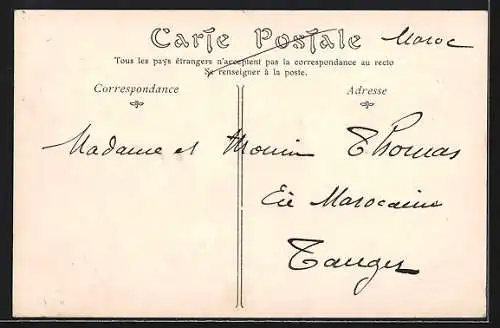 Carte Postale Maroc
Tous les pays étrangers n'acceptent pas la correspondance au recto
Se renseigner à la poste.
Correspondance Adresse
Madame et Thomas
Cie Marocaine
Tanger